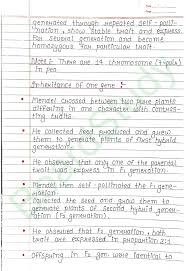 generated through repeated self-polli-
nation, show stable trait and express
for several generation and become
homozygous for particular trait
Note: There are 14 chromosome (7-pair)
in pea
Inheritance of one gene :-
Mendel crossed between two pure plants
differing in a character with contrasting
traits
He collected seed produced and grew
them to generate plants of first hybrid
generation.
He observed that only one of the parental
trait was express in F1 generation.
Mendel then self-pollinated the F1 gene-
ration.
Collected the seed and grow them to
generate plants of second hybrid gener-
ation (F2 generation).
He observed that F2 generation, both
trait are expressed in proportion 3:1
Offspring, in F2 gen were identical to